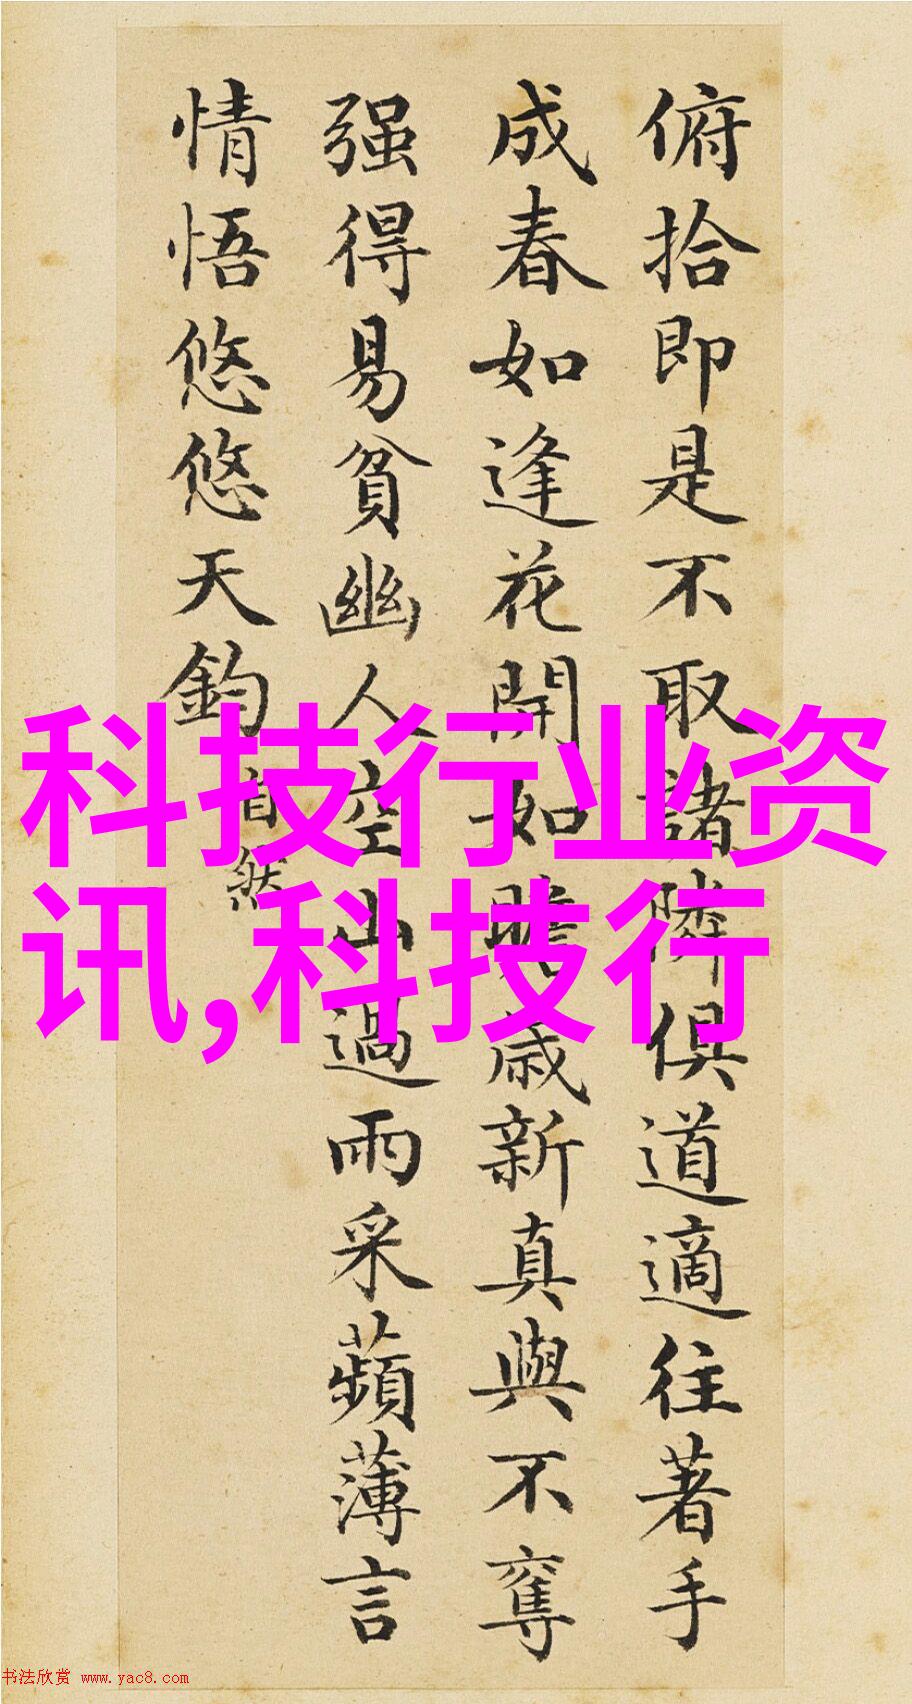 俯拾即是不取諸隣俱道適往著手
成春如逢花開如瞻歲新真與不奪
强得易貧幽人空山過雨采蘋薄言
情悟悠悠天鈞
自然
科技行业资
讯,科技行
书法欣赏 www.yac8.com